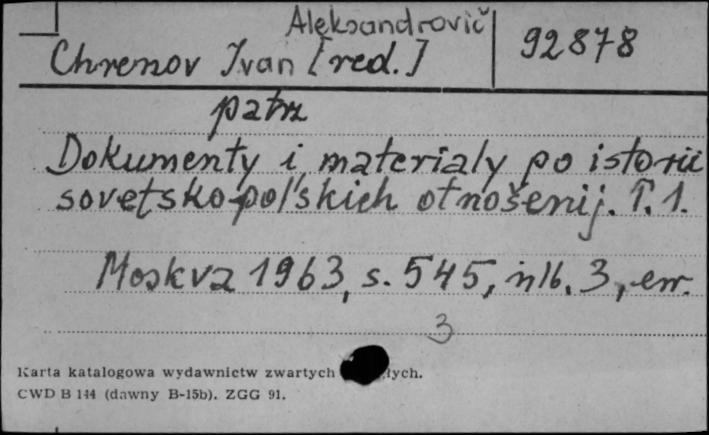 Aleksandrovič
Chrenov Ivan [red.] 92878
patrz
Dokumenty i materialy po istorii
sovetsko-pol'skich otnošenij. T. 1.
Moskva 1963, s. 545, nlb. 3, err.
3
Karta katalogowa wydawnictw zwartych
CWD B 144 (dawny B-15b). ZGG 91.